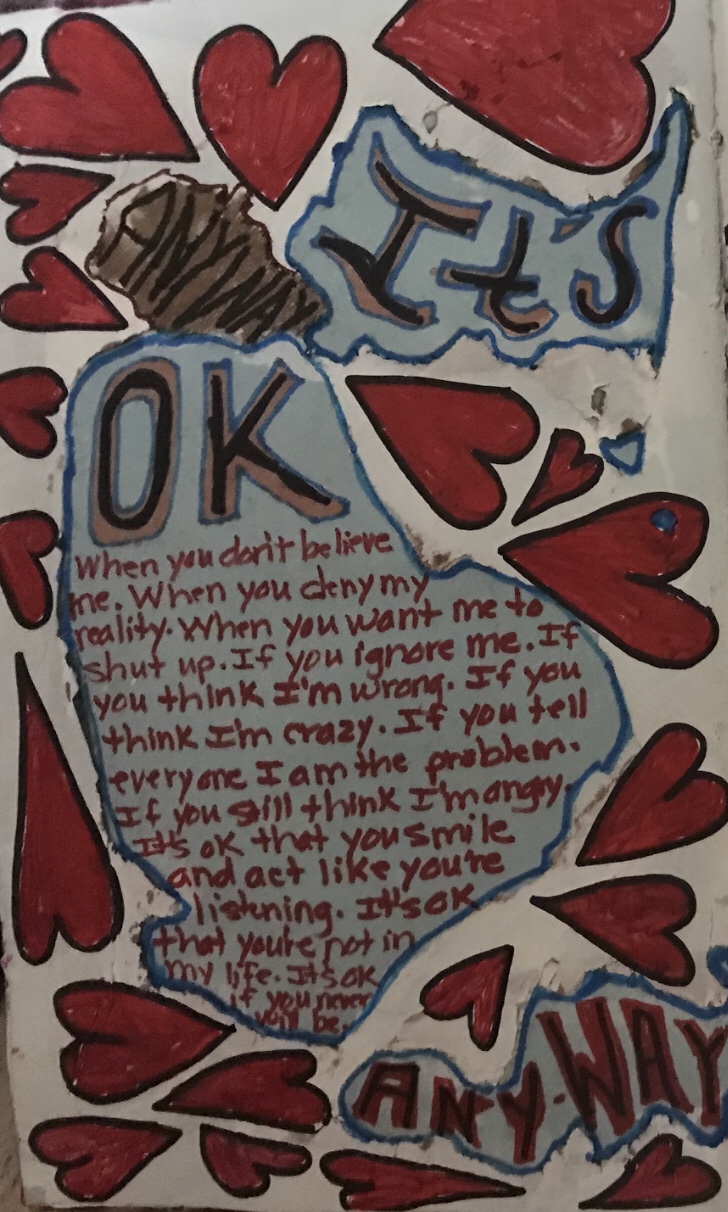 ANYWAY
It's
OK
When you don't believe
me. When you deny my
reality. When you want me to
shut up. If you ignore me. If
you think I'm wrong. If you
think I'm crazy. If you tell
everyone I am the problem.
If you still think I'm angry.
It's ok that you smile
and act like you're
listening. It's ok
that you're not in
my life. It's ok
if you never
will be.
ANY-WAY